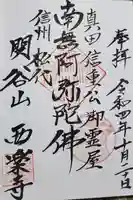 奉拝
令和四年十月二日
真田信重公御霊屋
南無阿弥陀佛
信州松代
関谷山 西楽寺